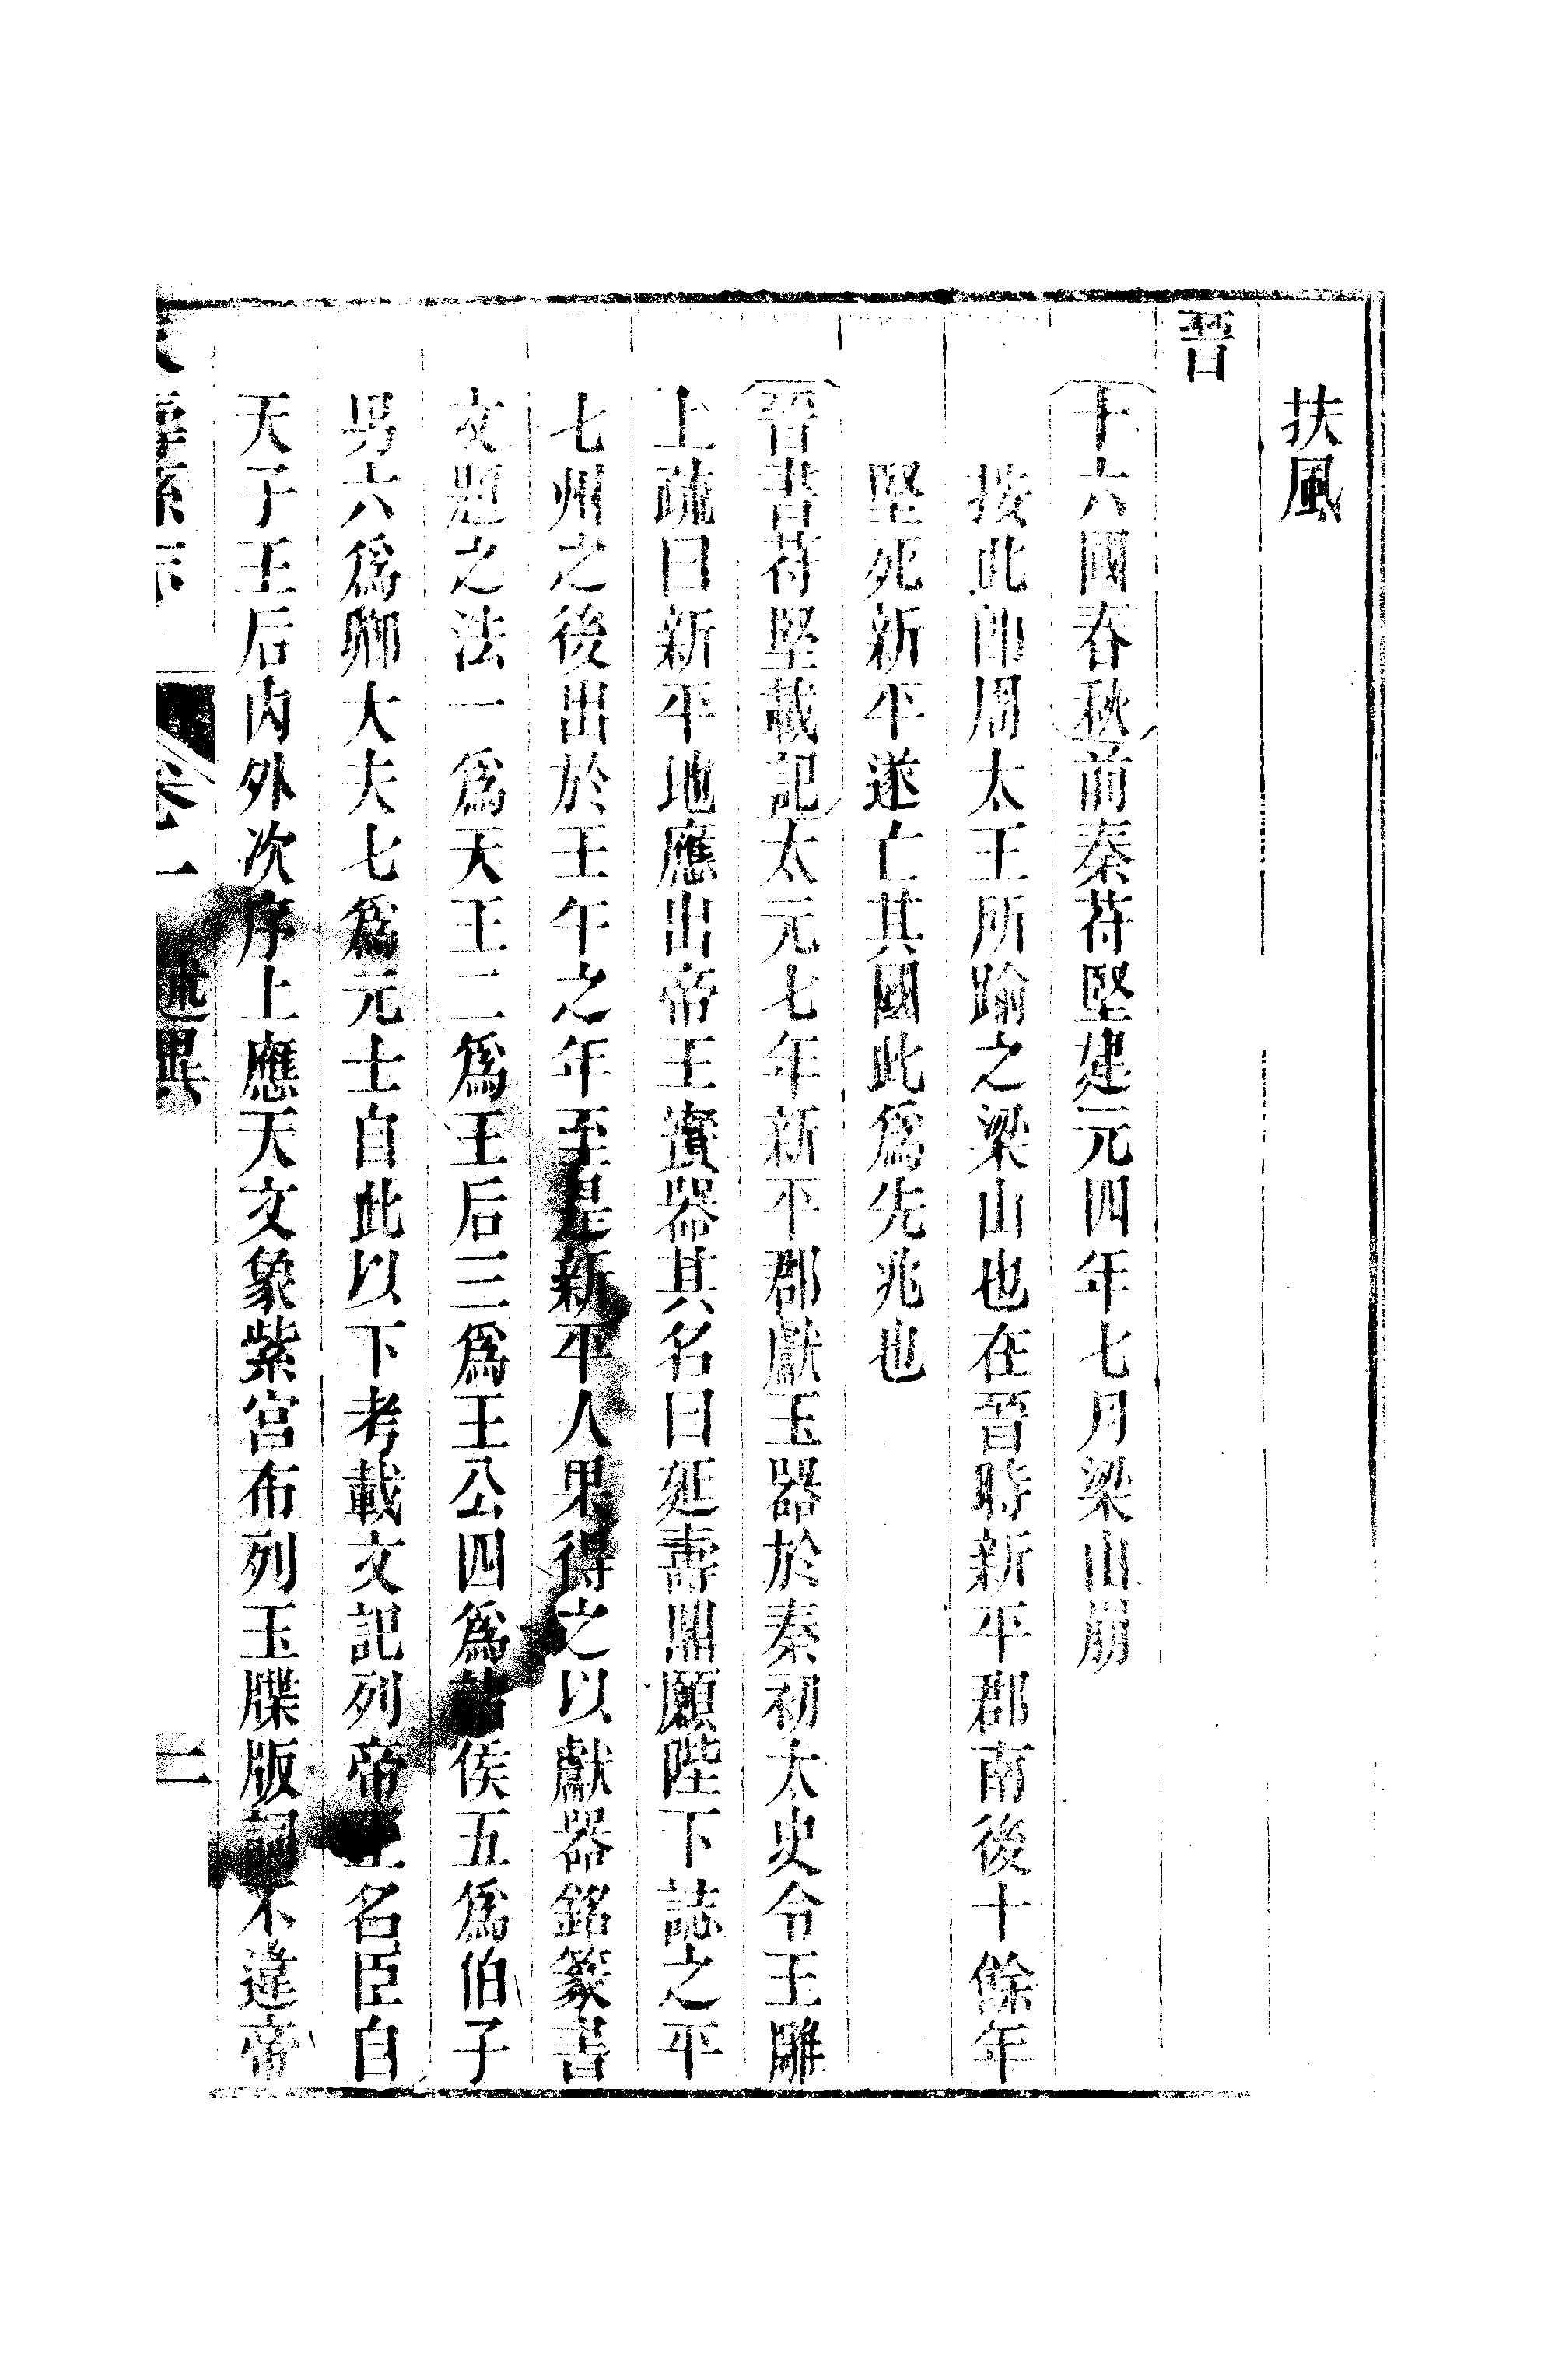 扶風
晉
十六國春秋前秦苻堅建元四年七月梁山崩
按此即周太王所踰之梁山也在晉時新平郡南後十餘年
堅死新平遂亡其國此爲先兆也
晉書苻堅載記太元七年新平郡獻玉器於秦初太史令王雕
上疏曰新平地應出帝王寶器其名曰延壽鼎願陛下誌之平
七州之後出於壬午之年至是新平人果得之以獻器銘篆書
文題之法一爲天王二爲王后三爲王公四爲諸侯五爲伯子
男六爲卿大夫七爲元士自此以下考載文記列帝王名臣自
天子王后內外次序上應天文象紫宮布列玉牒版詞不違帝
卷一 述異 二